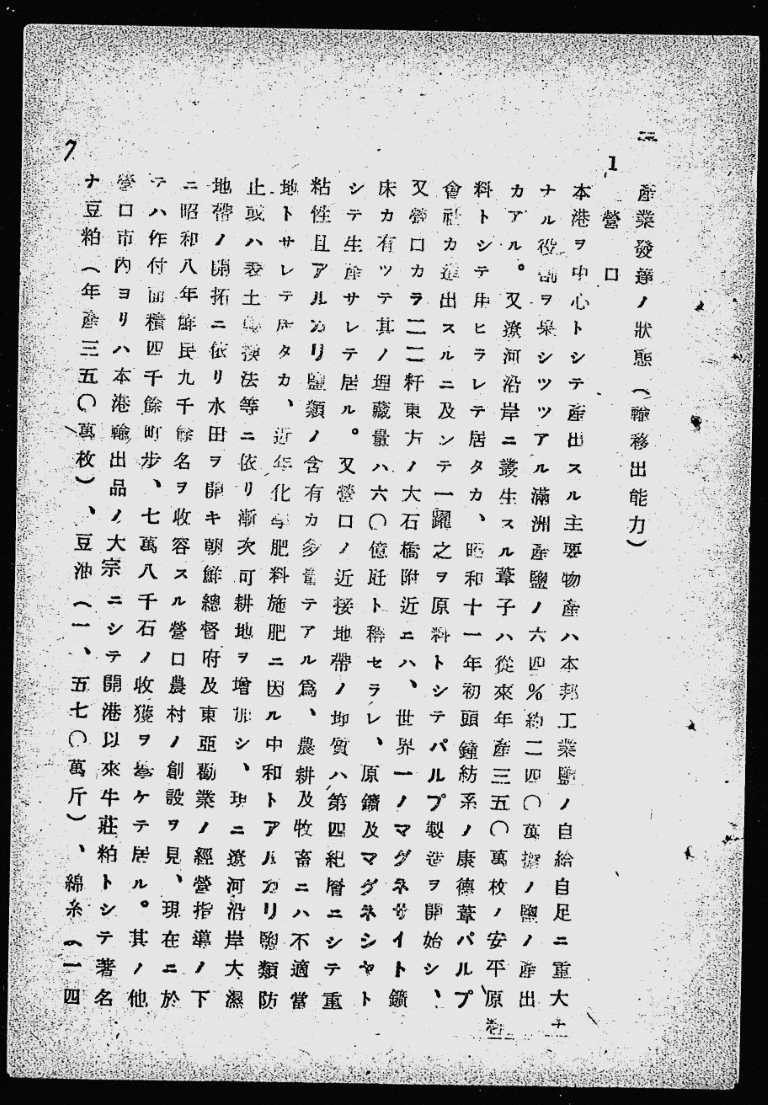 三
產業發達ノ狀態（輸移出能力）
1 營口
本港ヲ中心トシテ產出スル主要物產ハ本邦工業鹽ノ自給自足ニ重大ナ
ナル役割ヲ果シツツアル滿洲產鹽ノ六四％約二四〇萬擔ノ鹽ノ產出
カアル。又遼河沿岸ニ叢生スル葦子ハ從來年產三五〇萬枚ノ安平原
料トシテ用ヒラレテ居タカ、昭和十一年初頭鐘紡系ノ康德葦パルプ
會社カ進出スルニ及ンテ一躍之ヲ原料トシテパルプ製造ヲ開始シ、
又營口カラ二二粁東方ノ大石橋附近ニハ、世界一ノマグネサイト鑛
床カ有ツテ其ノ埋藏量ハ六〇億瓩ト稱セラレ、原鑛及マグネシヤト
シテ生產サレテ居ル。又營口ノ近接地帶ノ地質ハ第四紀層ニシテ重
粘性且アルカリ鹽類ノ含有カ多量テアル爲、農耕及牧畜ニハ不適當
地トサレテ居タカ、近年化學肥料施肥ニ因ル中和トアルカリ鹽類防
止或ハ表土轉換法等ニ依リ漸次可耕地ヲ增加シ、現ニ遼河沿岸大濕
地帶ノ開拓ニ依リ水田ヲ開キ朝鮮總督府及東亞勸業ノ經營指導ノ下
ニ昭和八年鮮民九千餘名ヲ收容スル營口農村ノ創設ヲ見、現在ニ於
テハ作付面積四千餘町步、七萬八千石ノ收獲ヲ擧ケテ居ル。其ノ他
營口市內ヨリハ本港輸出品ノ大宗ニシテ開港以來牛莊粕トシテ著名
ナ豆粕（年產三五〇萬枚）、豆油（一、五七〇萬斤）、綿糸（一四
7